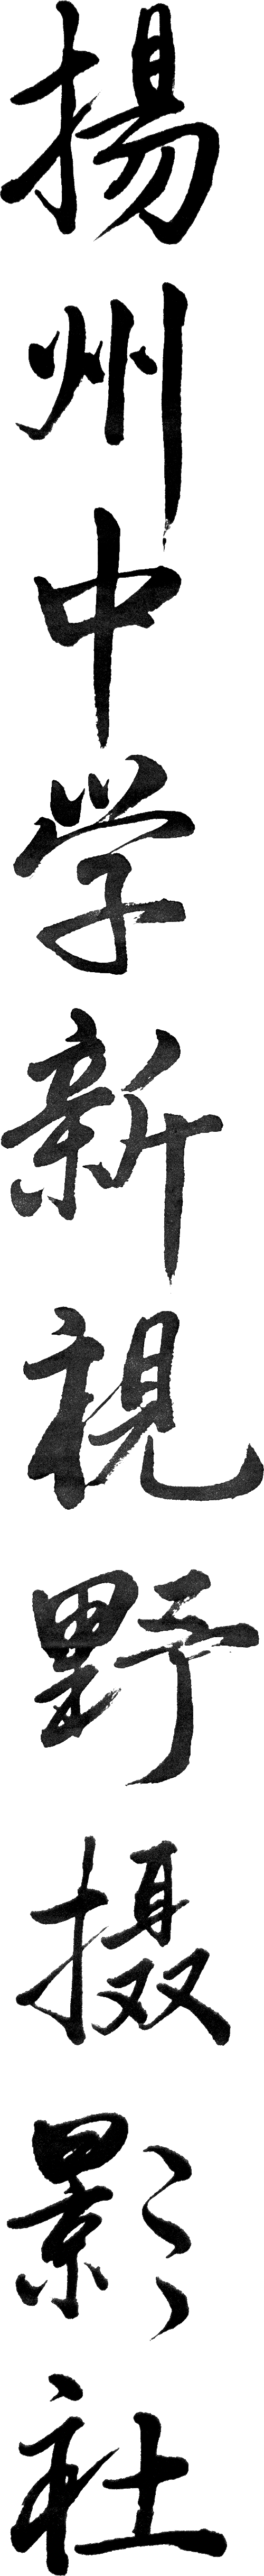 揚州中学新視野摄影社